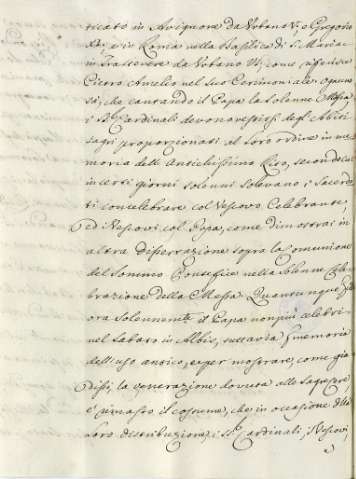 ticato in Avignone da Urbano V, e Gregorio
XI, e in Roma nella Basilica di S. Maria
in Trastevere da Urbano VI, come riferisce
Pietro Amelio nel suo Cerimoniale: ognuno
sà, che cantando il Papa la solenne Messa,
i SS. Cardinali devono vestirsi degl' Abiti
sagri proporzionati al loro ordine in me
moria dell' Antichissimo Rito, secondo cui
in certi giorni solenni solevano i Sacerdo
ti concelebrare col Vescovo Celebrante,
ed i Vescovi col Papa, come dimostrai in
altra dissertazione sopra la Comunione
del Sommo Pontefice nella solenne Cele
brazione della Messa. Quantunque
ora solennemte. il Papa non più celebri
nel Sabato in Albis, tuttavia memoria
dell' uso antico, e per mostrare, come già
dissi, la venerazione dovuta alle sagre cere,
è rimasto il costume, che in occasione della
loro distribuzione, i SS. Cardinali, Vescovi,